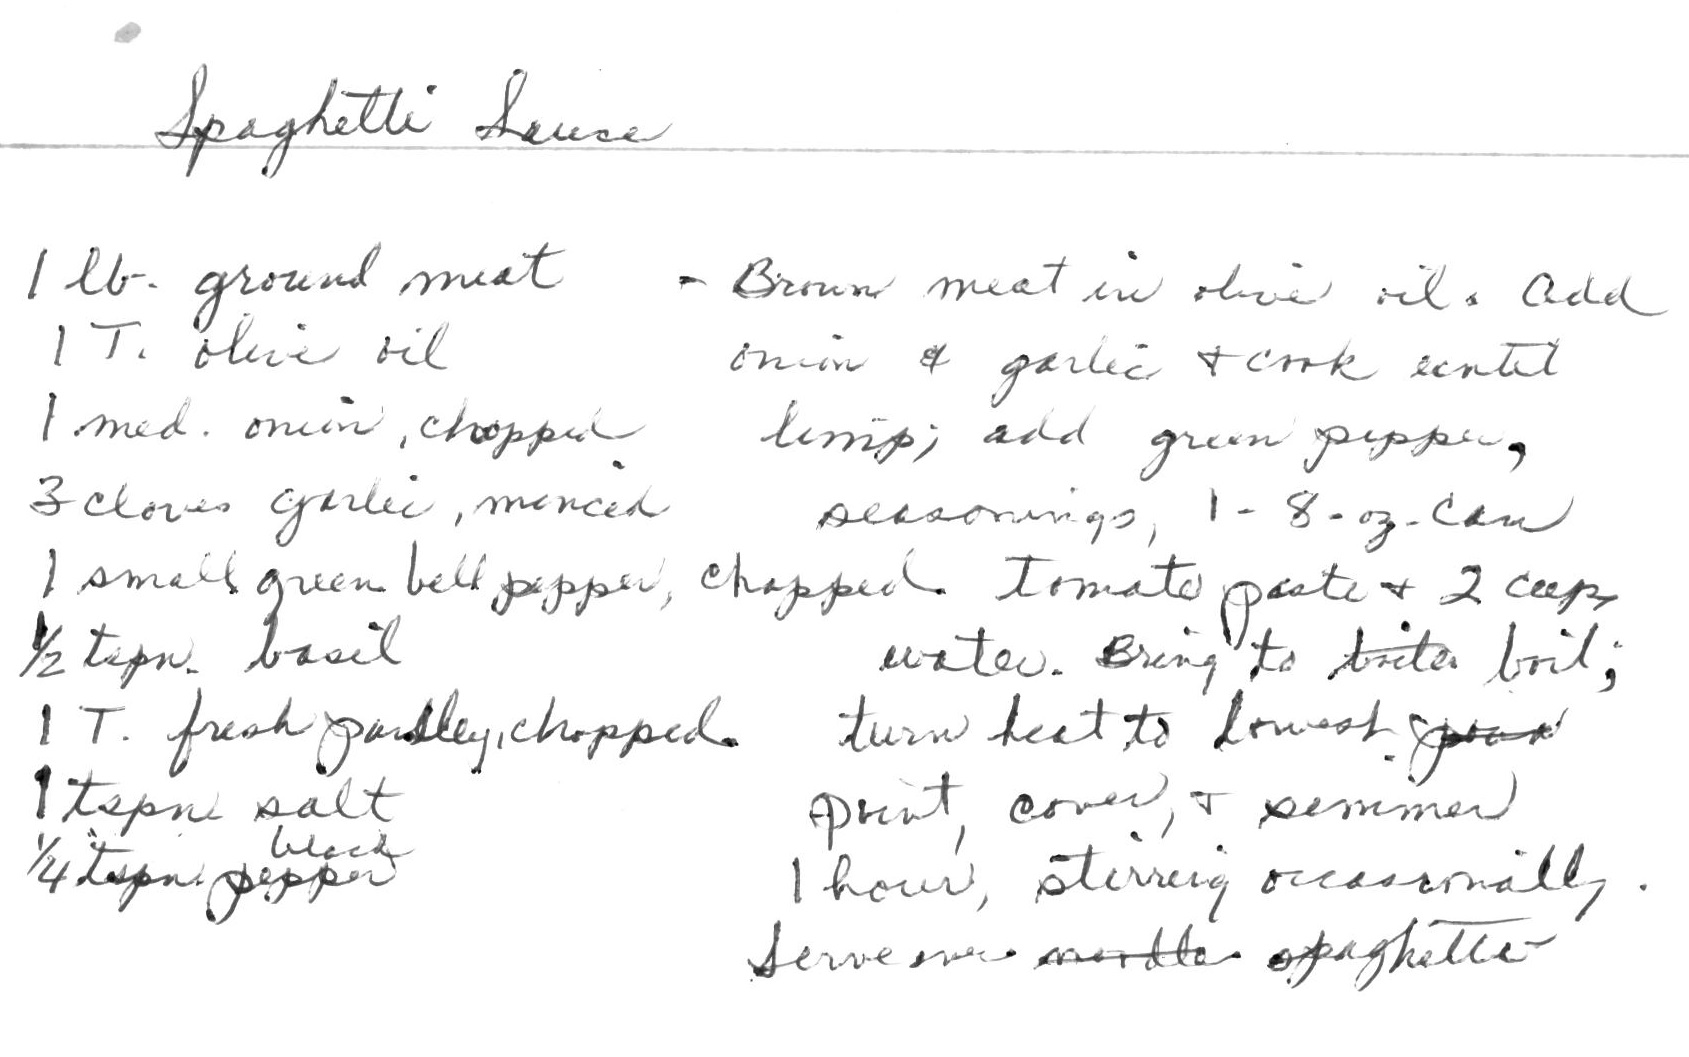 Spaghetti Sauce
1 lb. ground meat
1 T. olive oil
1 med. onion, chopped
3 cloves garlic, minced
1 small green bell pepper, chopped.
1/2 tspn. basil
1 T. fresh parsley, chopped.
1 tspn salt
black
1/4 tspn pepper
- Brown meat in olive oil. Add
onion & garlic & cook until
limp; add green pepper,
seasonings, 1 - 8-oz. can
tomato paste & 2 cups
water. Bring to boil;
turn heat to lowest
point, cover, & simmer
1 hour, stirring occasionally.
Serve over noodles spaghetti